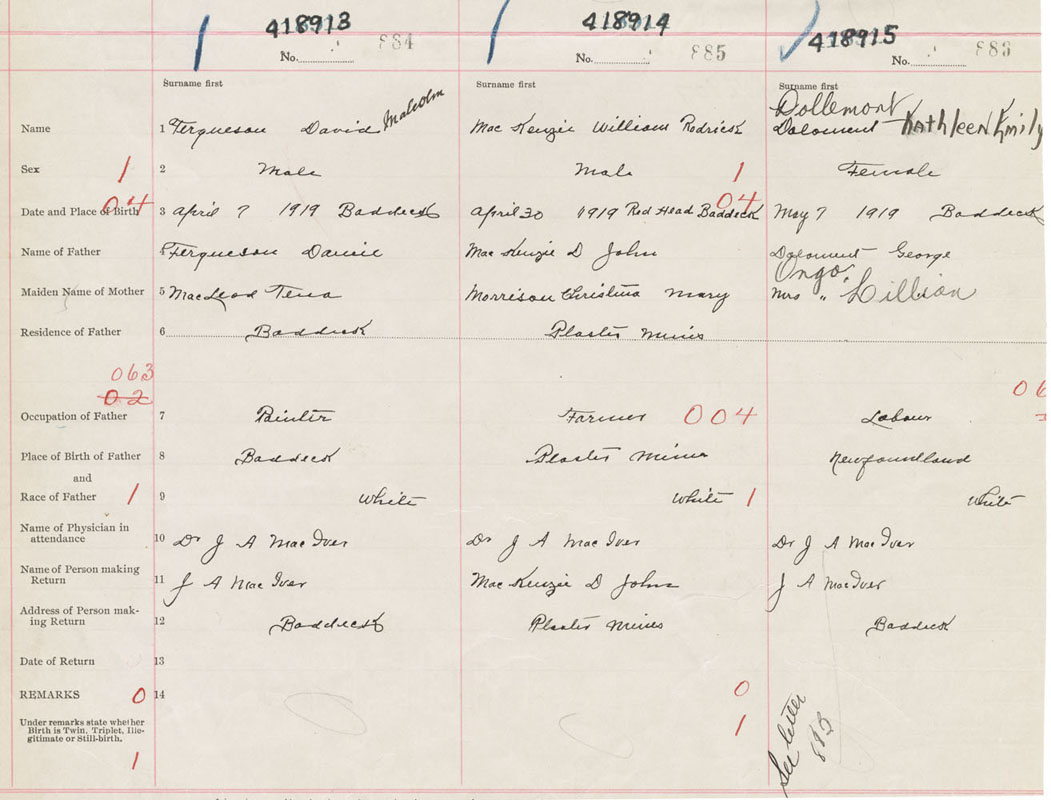 418913 418914 418915
No. 884 No. 885 No. 883
Surname first Surname first Surname first
Dollemont
Name 1 Fergueson David Malcolm Mac Kenzie William Rodrick Doloment Kathleen Emily
Sex 1 2 Male Male 1 Female
04 04
Date and Place of Birth 3 April 7 1919 Baddeck April 30 1919 Red Head Baddeck May 7 1919 Baddeck
Name of Father 4 Fergueson Dannie Mac Kenzie D John Doloment George
Ongo
Maiden Name of Mother 5 MacLeod Tena Morrison Christina Mary Mrs " Lillian
Residence of Father 6 Baddeck Plaster Mines
063
02 06
Occupation of Father 7 Painter Farmer 004 Labour
Place of Birth of Father 8 Baddeck Plaster Mines Newfoundland
and
Race of Father 1 9 White White 1 White
Name of Physician in
attendance 10 Dr J A MacIver Dr J A MacIver Dr J A MacIver
Name of Person making
Return 11 J A MacIver Mac Kenzie D John J A MacIver
Address of Person mak-
ing Return 12 Baddeck Plaster Mines Baddeck
Date of Return 13
REMARKS 0 14 0
Under remarks state whether
Birth is Twin, Triplet, Ille-
gitimate or Still-birth.
1 1
See letter